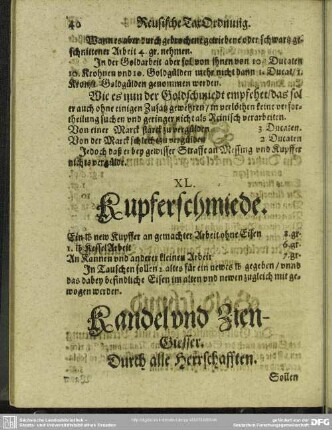 40 Reussische Tax Ordnung.
Wann es aber durch gebrochene getriebene oder schwartz ge-
schnittener Arbeit 4. gr. nehmen.
In der Goldarbeit aber sol von ihnen von 10. Ducaten
10. Krohnen und 10. Goldgülden mehr nicht dann 1. Ducat/ 1.
Krohn. Goldgülden genommen werden.
Wie es nun der Goldschmiedt empfehet/ das sol
er auch ohne einigen Zusatz gewehren/ im verlöthen keine vor-
theilung suchen und geringer nicht als Reinisch verarbeiten.
Von einer Marck starck zu vergülden 3 Ducaten.
Von der Marck schlecht zu vergülden 2 Ducaten.
Jedoch daß er bey gewisser Straffe an Messing und Kupffer
nichts vergülde.
XL.
Kupferschmiede.
Ein ℔ new Kupffer an gemachter Arbeit ohne Eisen 8. gr.
1. ℔ Kessel Arbeit 6. gr.
An Kannen und anderer kleinen Arbeit 7. gr.
In Tauschen sollen 2 altes für ein newes ℔ gegeben/ unnd
das dabey befindliche Eisen im alten und newen zugleich mit ge-
wogen werden.
Kandel und Zien-
Giesser.
Durch alle Herrschafften.
Sollen